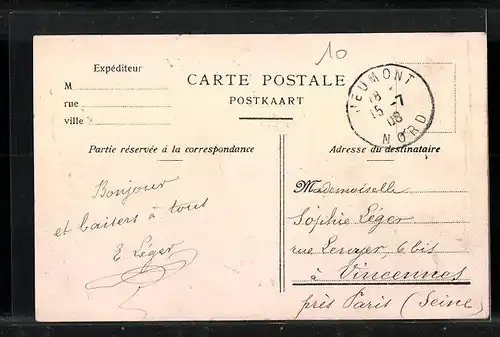 10
Expéditeur
M
rue
ville
CARTE POSTALE
POSTKAART
JEUMONT
18
15 -7
08
NORD
Partie réservée à la correspondance
Adresse du destinataire
Bonjour
et baisers à tous
E Léger
Mademoiselle
Sophie Léger
rue Leroyer 6 bis
à Vincennes
près Paris (Seine)